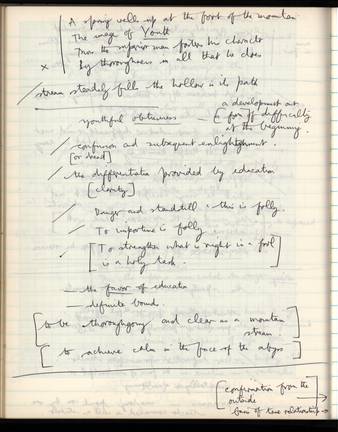 A spring wells up at the foot of the mountain
The image of Youth
Thus the superior man fosters his character
x By thoroughness in all that he does
/ stream steadily fills the hollow in its path
youthful obtuseness — a development out
[for] difficulty
at the beginning.
/ confusion and subsequent enlightenment.
[or dread]
/ the differentiation provided by education
[clarity]
/ Danger and standstill = this is folly.
/ To importune is folly
/ [To strengthen what is right in a fool
is a holy task.]
— the favor of education
— definite bounds.
[to be thoroughgoing and clear as a mountain
stream.]
[to achieve calm in the face of the abyss]
[confirmation from the
outside]
basis of true relationship →